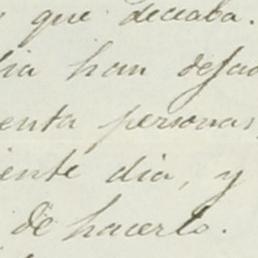 que deceaba.
han deja
enta personas,
iente dia, y
de hacerlo.